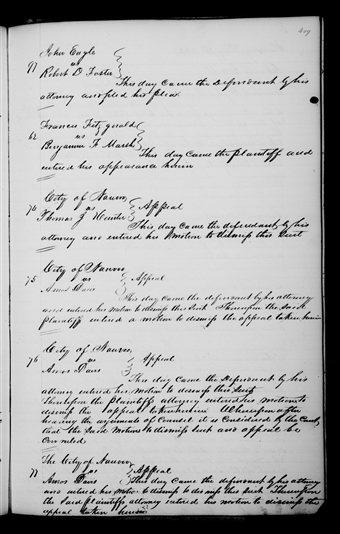 419
John Eagle
97 vs
Robert D Foster
This day came the Defendant by his
attorney and filed his plea
Francis Fitzgerald
62 vs
Benjamin F Marsh
This day came the plaintiff and
entered his appearance herein
City of Nauvoo
74 vs Appeal
Thomas J Hunter
This day came the defendant by his
attorney and entered his motion to dismiss this suit
City of Nauvoo
75 vs Appeal
Amos Davis
This day came the defendant by his attorney
and entered his motion to dismiss this suit Thereupon the said
plaintiff entered a motion to dismiss the appeal taken herein
City of Nauvoo
76 vs Appeal
Amos Davis
This day came the Defendant by his
attorney entered his motion to dismiss this suit
Thereupon the plaintiffs attorney entered his motion to
dismiss the appeal taken herein Whereupon after
hearing the arguments of Counsel it is considered by the Court
that the said Motions to dismiss suit and appeal be
Overruled
The City of Nauvoo
77 vs Appeal
Amos Davis This day came the defendant by his attorney
and entered his motion to dismiss to dismiss this suit Thereupon
the said plaintiffs attorney entered his motion to dismiss the
appeal taken herein